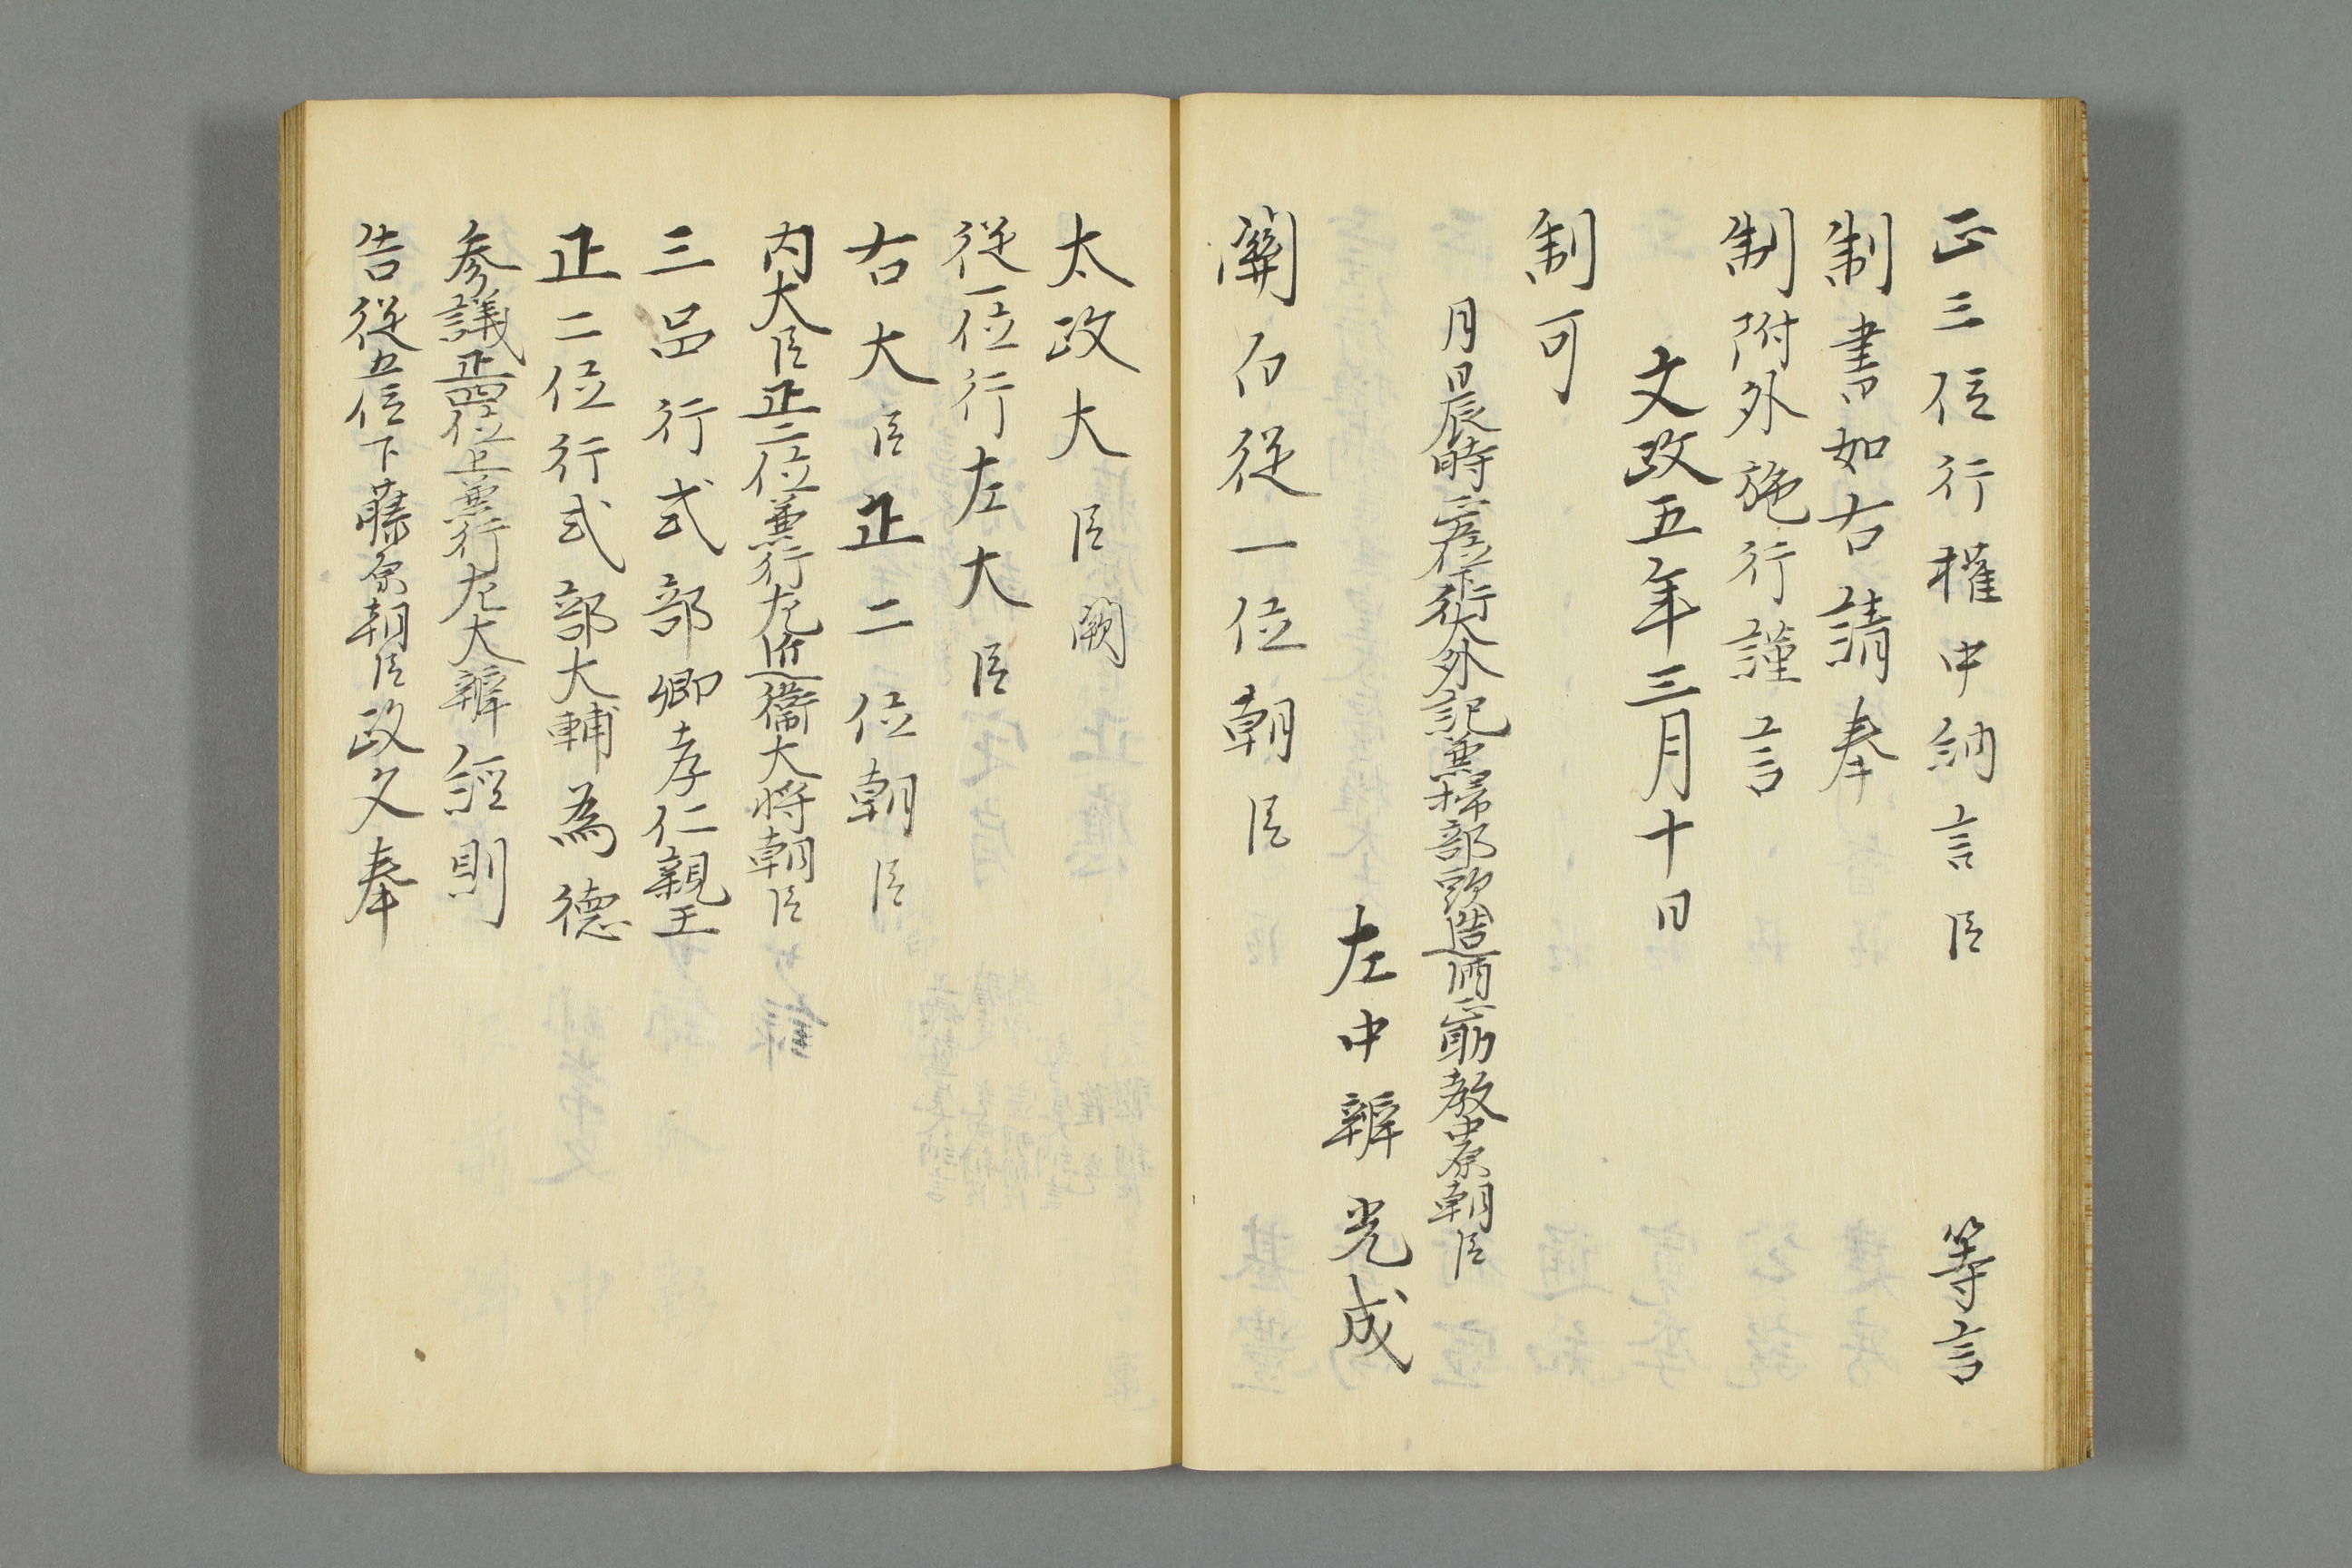 正三位行權中納言臣　等言
制書如右請奉
制附外施行謹言
文政五年三月十日
制可
月日辰時正五位下行大外記兼掃部頭造酒正助教中原朝臣
左中辨光成
關白從一位朝臣
太政大臣闕
從一位行左大臣
右大臣正二位朝臣
内大臣正二位兼行左近衞大将朝臣
三品行式部卿孝仁親王
正二位行式部大輔為德
参議正四位上兼行左大辨經則
告從五位下藤原朝臣政文奉